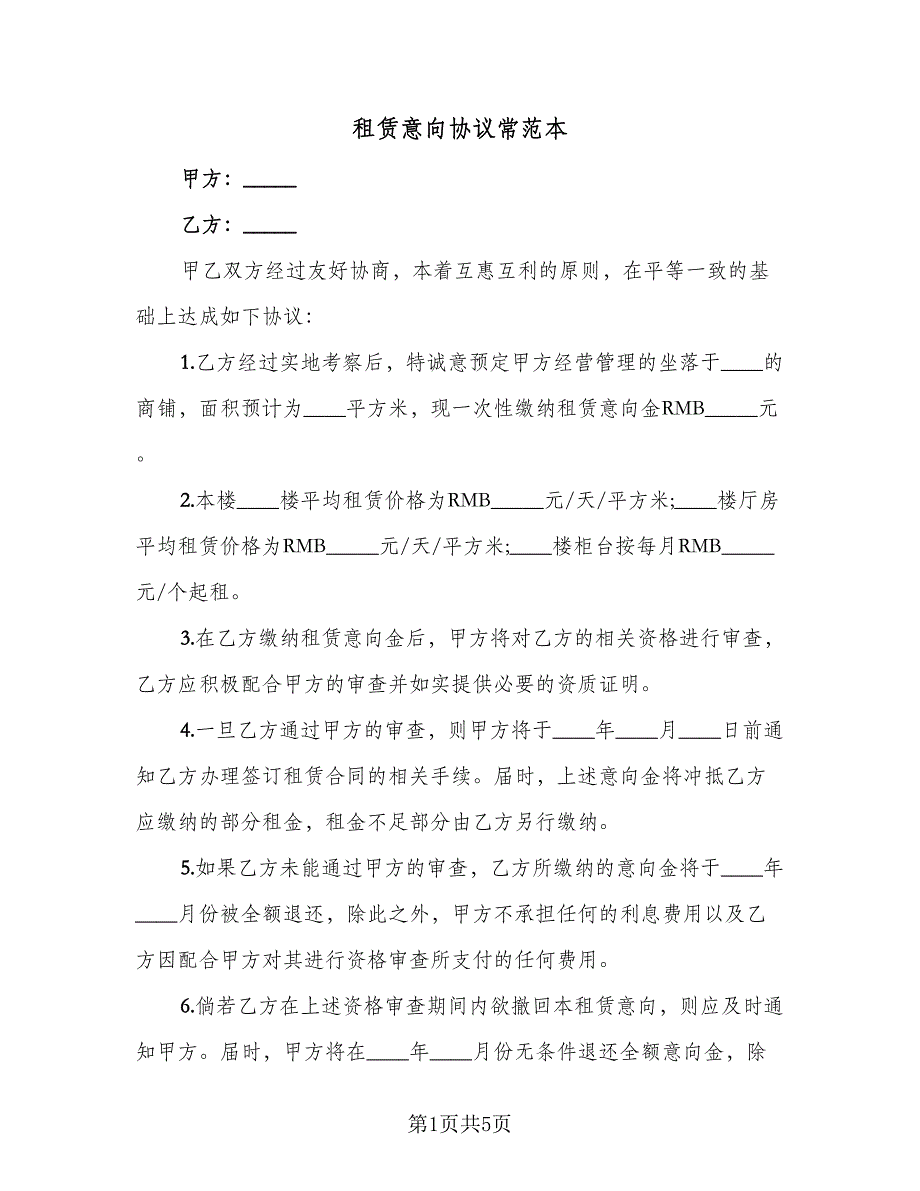 租赁意向协议常范本
甲方：_____
乙方：_____
甲乙双方经过友好协商，本着互惠互利的原则，在平等一致的基
础上达成如下协议：
1.乙方经过实地考察后，特诚意预定甲方经营管理的坐落于____的
商铺，面积预计为____平方米，现一次性缴纳租赁意向金RMB_____元
。
2.本楼____楼平均租赁价格为RMB_____元/天/平方米;____楼厅房
平均租赁价格为RMB_____元/天/平方米;____楼柜台按每月RMB_____
元/个起租。
3.在乙方缴纳租赁意向金后，甲方将对乙方的相关资格进行审查，
乙方应积极配合甲方的审查并如实提供必要的资质证明。
4.一旦乙方通过甲方的审查，则甲方将于____年____月____日前通
知乙方办理签订租赁合同的相关手续。届时，上述意向金将冲抵乙方
应缴纳的部分租金，租金不足部分由乙方另行缴纳。
5.如果乙方未能通过甲方的审查，乙方所缴纳的意向金将于____年
____月份被全额退还，除此之外，甲方不承担任何的利息费用以及乙
方因配合甲方对其进行资格审查所支付的任何费用。
6.倘若乙方在上述资格审查期间内欲撤回本租赁意向，则应及时通
知甲方。届时，甲方将在____年____月份无条件退还全额意向金，除
第1页共5页